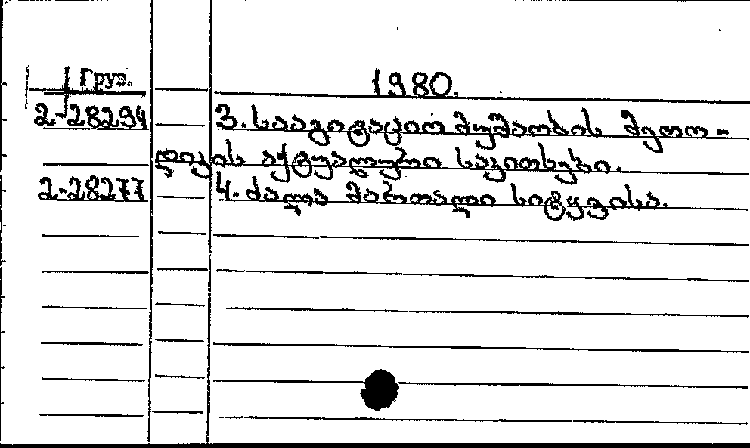 Груз.
1980.
2-28294 3. სააგიტაციო მუშაობის მეთო-
დიკის აქტუალური საკითხები.
2-28277 4. ძალა მართალი სიტყვისა.